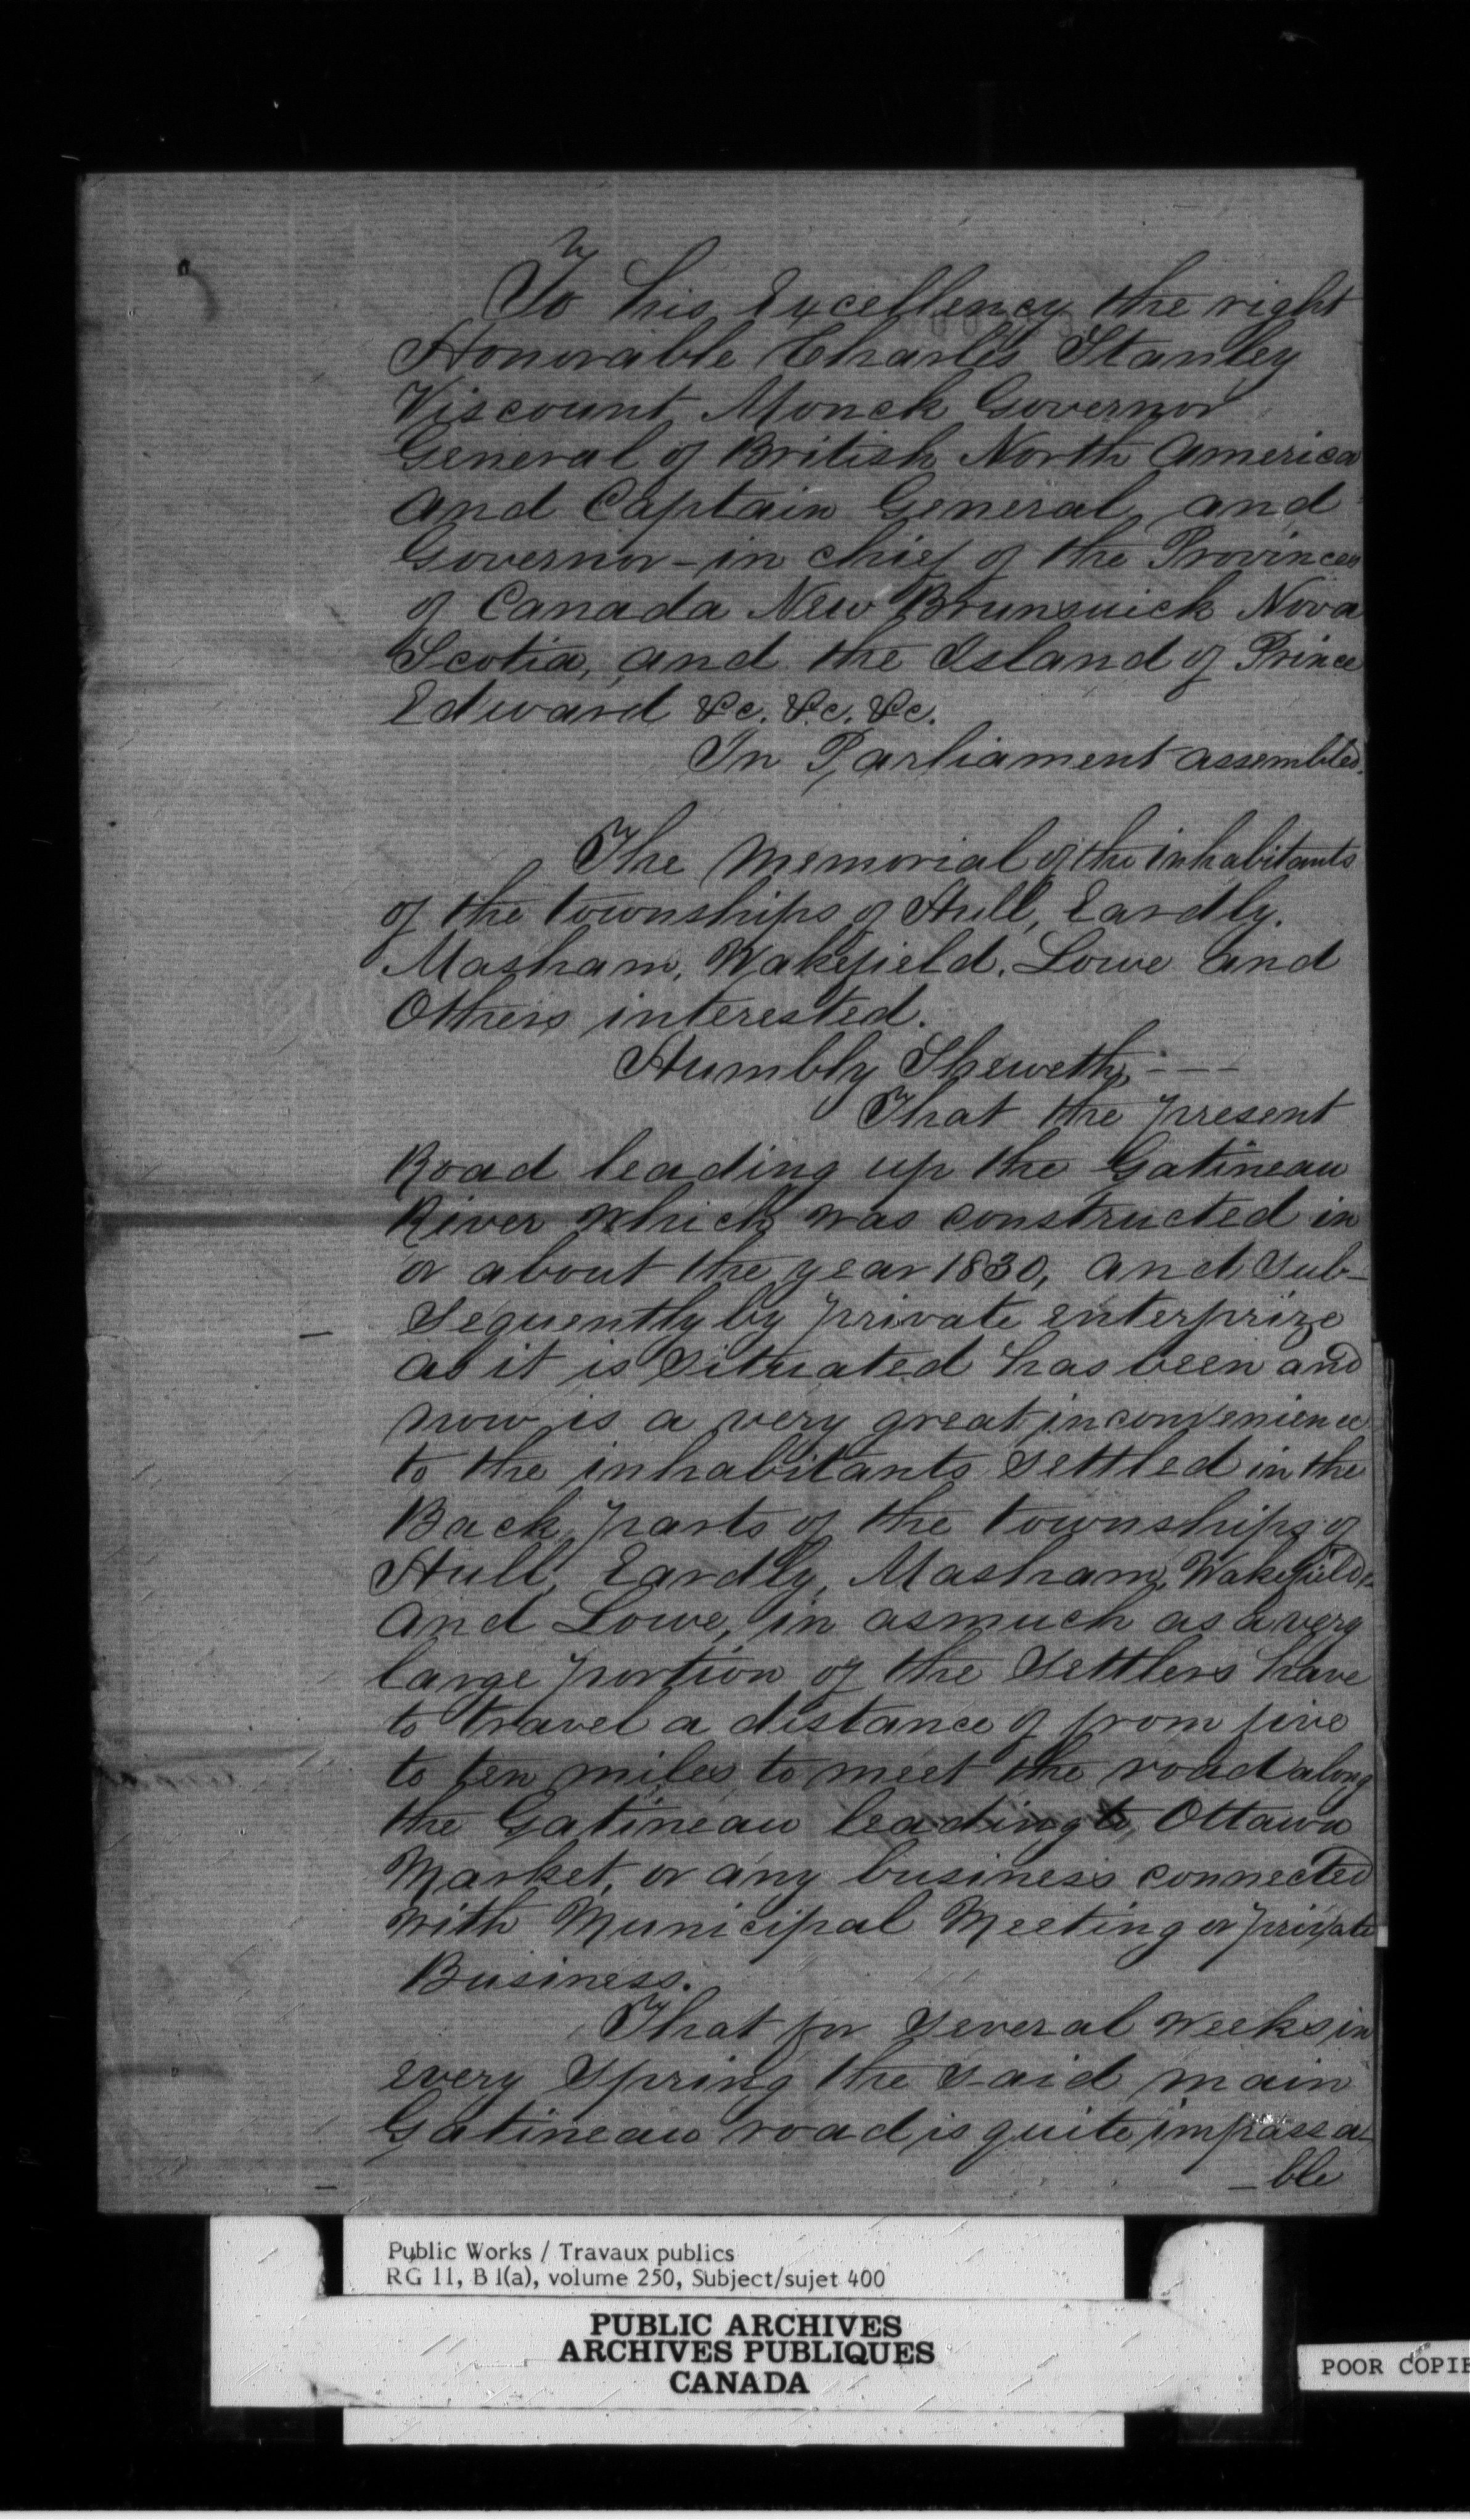 To his Excellency the right
Honorable Charles Stanley
Viscount Monck Governor
General of British North America
and Captain General and
Governor-in chief of the Provinces
of Canada New Brunswick Nova
Scotia, and the Island of Prince
Edward &c. &c. &c.
In Parliament assembled.
The Memorial of the inhabitants
of the townships of Hull, Eardly,
Masham, Wakefield, Lowe and
Others interested.
Humbly Sheweth ---
That the present
Road leading up the Gatineau
River which was constructed in
or about the year 1830, and sub-
sequently by private enterprize
as it is situated has been and
now is a very great inconvenience
to the inhabitants settled in the
Back parts of the townships of
Hull, Eardly, Masham, Wakefield,
and Lowe, in asmuch as a very
large portion of the settlers have
to travel a distance of from five
to ten miles to meet the road along
the Gatineau leading to Ottawa
Market, or any business connected
with Municipal Meeting or private
Business.
That for several weeks in
every spring the said main
Gatineau road is quite impassa-
-ble
Public Works / Travaux publics
RG 11, B 1(a), volume 250, Subject/sujet 400
PUBLIC ARCHIVES
ARCHIVES PUBLIQUES
CANADA
POOR COPIE